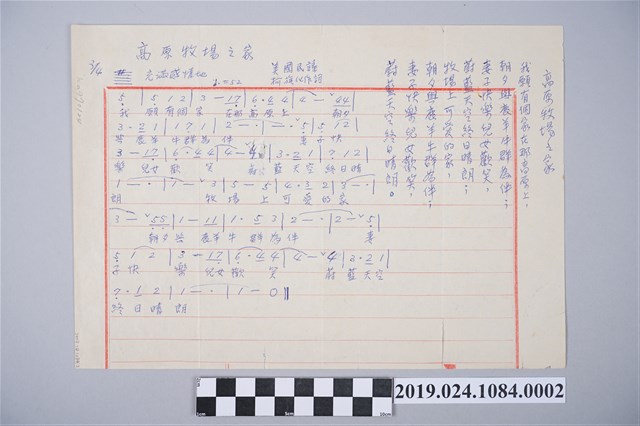 高原牧場之家
3/4
充滿感情地
♩=52
美國民謠
5 | 5 1 2 | 3 — 17 | 6·4 4 | 4 — 44 |
我 願有個家 在那高原上 朝夕
3·2 1 | 1 7 1 | 2 — · | — 5 | 5 1 2 |
與羲羊牛群為伴 妻子快
3 — 17 | 6·4 4 | 4 — | 3·2 1 | 7 1 2 |
樂 兒女歡 笑 藍天空 終日晴
1 — · | — 1 | 3 5 — 5 | 4·3 2 | 3 — · |
朗 牧場上可愛的家
3 — 55 | 1 — 11 | 1·5 3 | 2 — · | 2 — 5 |
朝夕與 羲羊牛 群為伴 妻
5 1 2 | 3 — 17 | 6·4 4 | 4 — 4 | 3·2 1 |
子快 樂 兒女歡 笑 蔚 藍天空
7·1 2 | 1 — · | 1 — 0 ‖
終日晴 朗
高原牧場之家
我願有個家在那高原上，
朝夕與羲羊牛群為伴；
妻子快樂兒女歡笑，
蔚藍天空終日晴朗；
牧場上可愛的家，
朝夕與羲羊牛群為伴；
妻子快樂兒女歡笑，
蔚藍天空終日晴朗。
0cm 5cm 10cm
2019.024.1084.0002